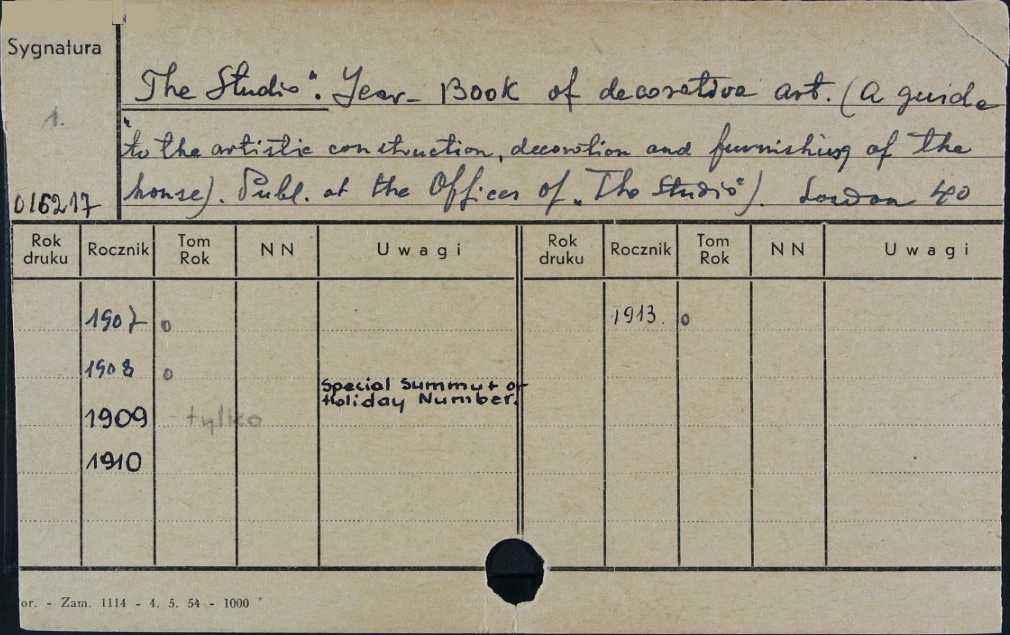 Sygnatura
1.
016217
„The Studio“. Year-Book of decorative art. (A guide
to the artistic construction, decoration and furnishing of the
house). Publ. at the Offices of „The Studio“). London 40
Rok druku Rocznik Tom Rok NN Uwagi Rok druku Rocznik Tom Rok NN Uwagi
1907 o 1913. o
1908 o
Special Summer or
Holiday Number.
1909 - tylko
1910
or. - Zam. 1114 - 4. 5. 54 - 1000